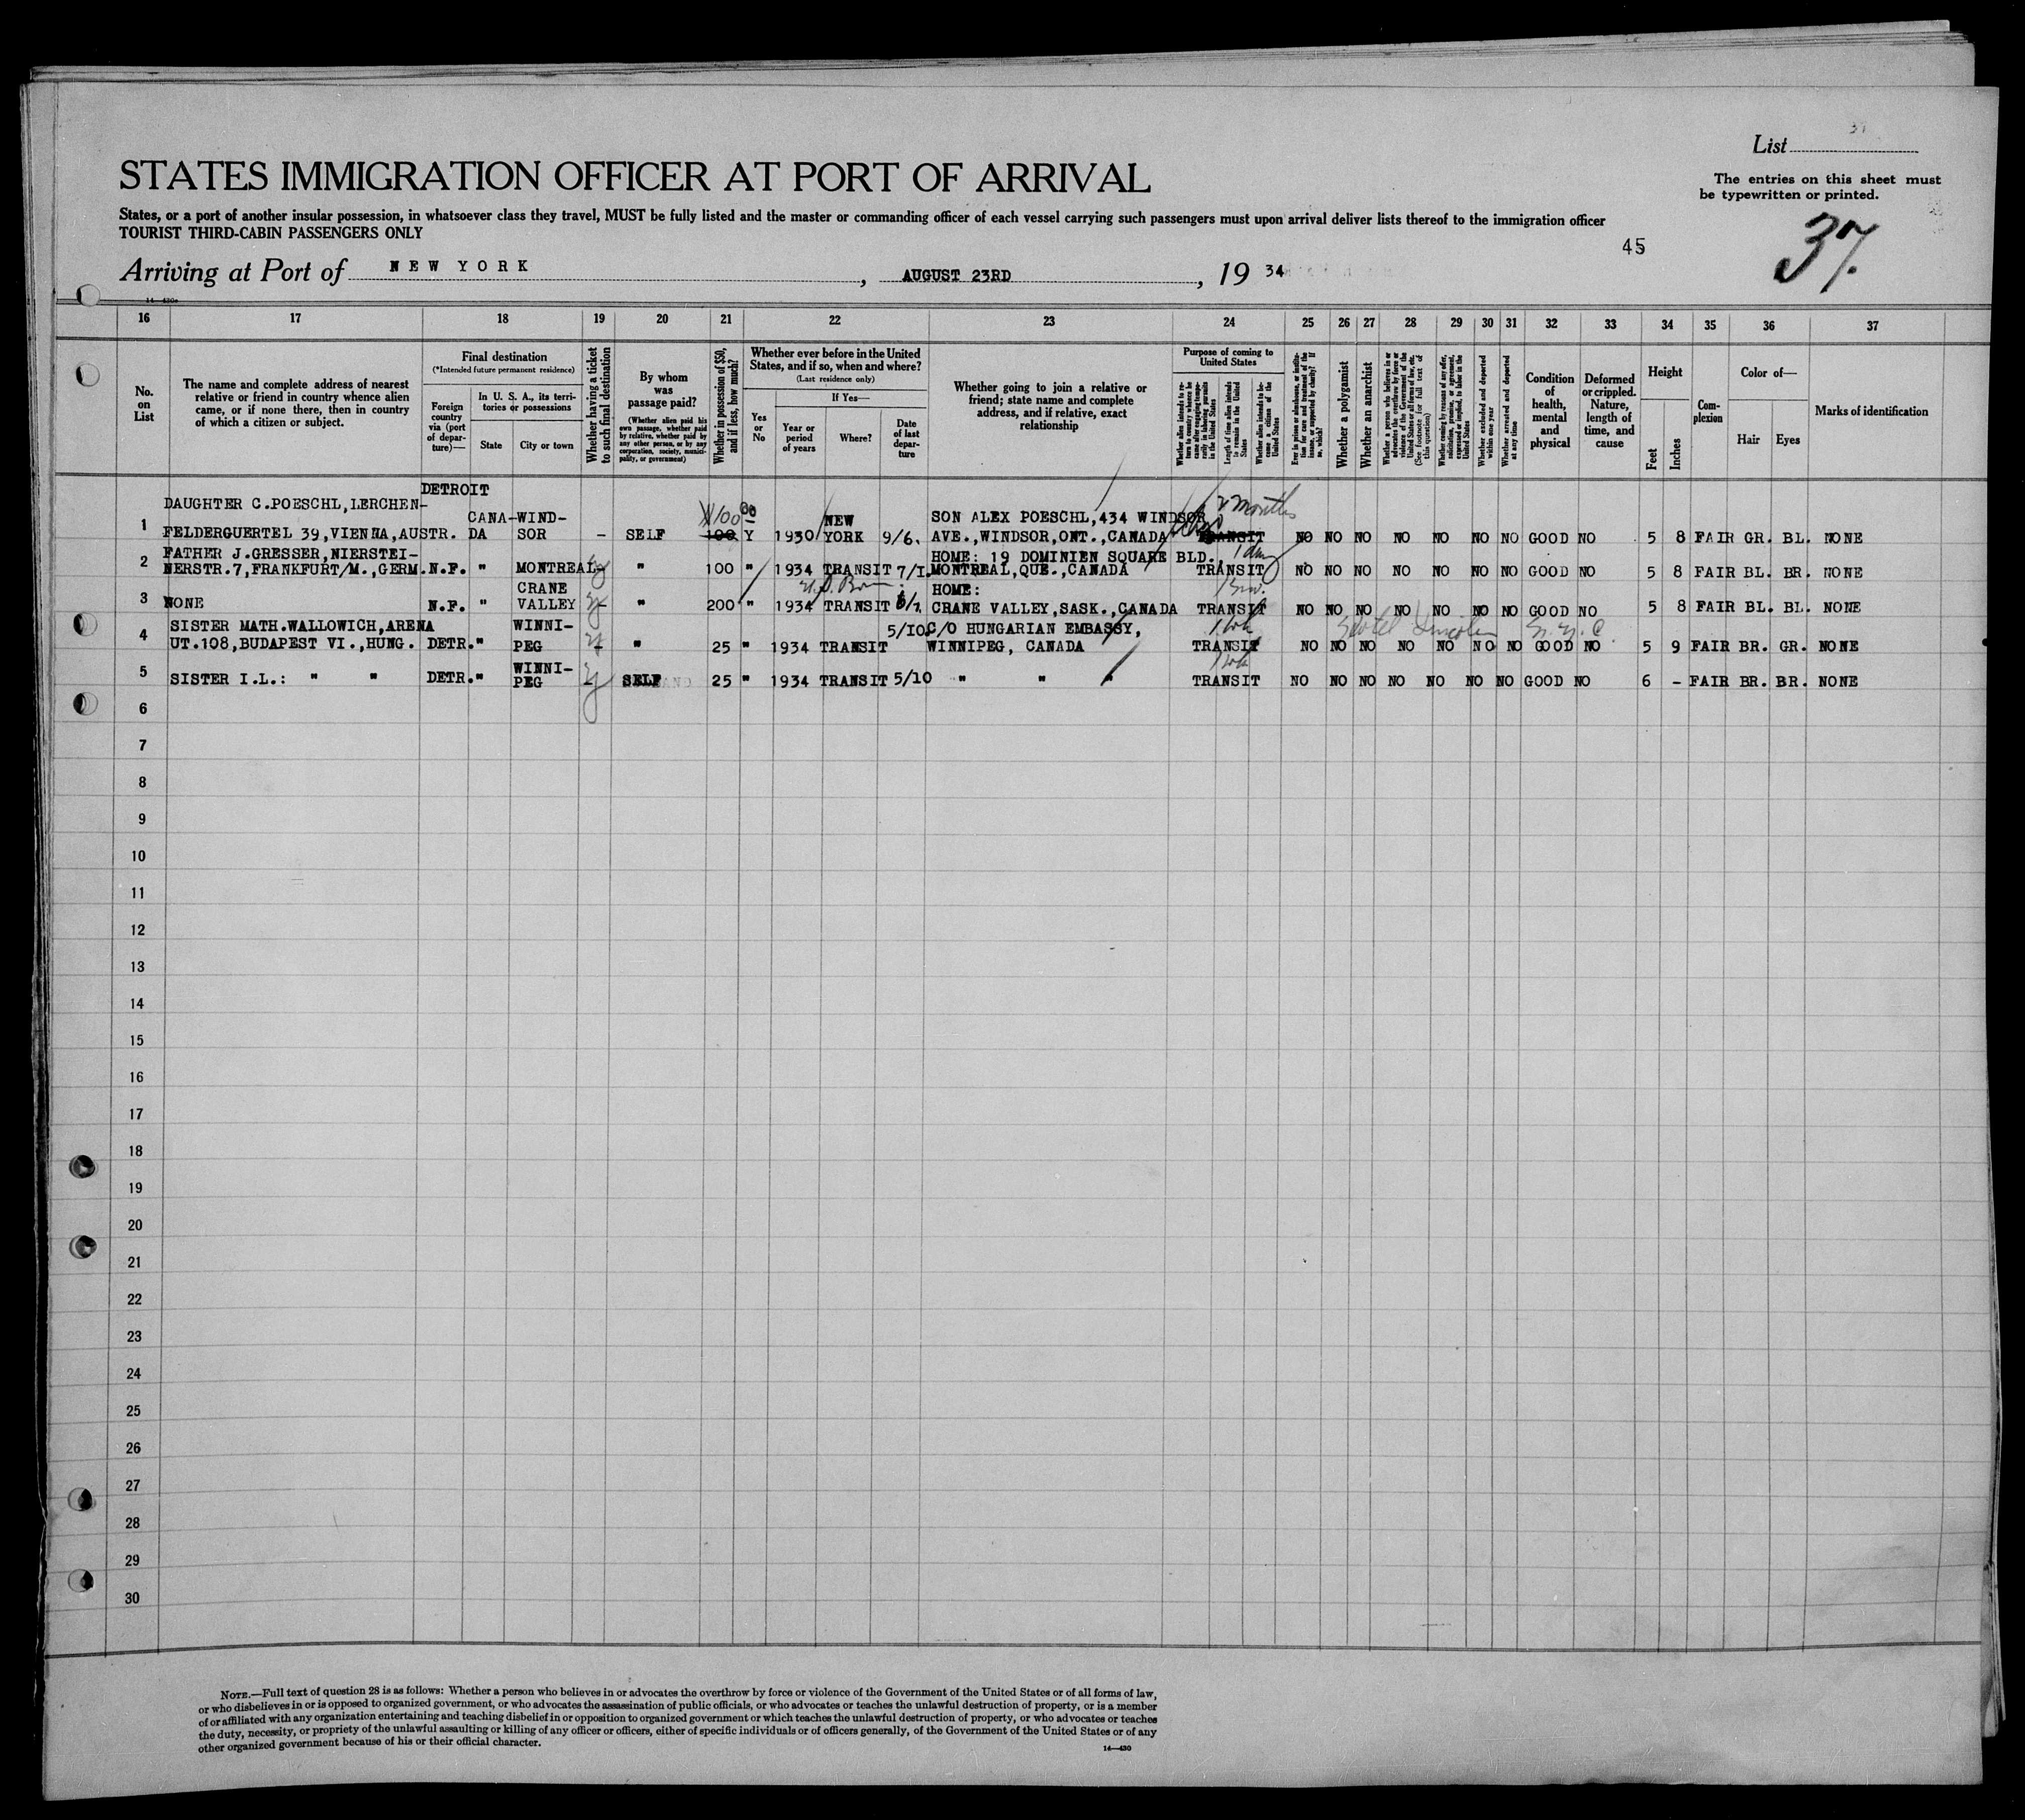 List
The entries on this sheet must
be typewritten or printed.
STATES IMMIGRATION OFFICER AT PORT OF ARRIVAL
States, or a port of another insular possession, in whatsoever class they travel, MUST be fully listed and the master or commanding officer of each vessel carrying such passengers must upon arrival deliver lists thereof to the immigration officer
TOURIST THIRD-CABIN PASSENGERS ONLY
45
37.
Arriving at Port of NEW YORK, AUGUST 23RD, 19 34
16 17 18 19 20 21 22 23 24 25 26 27 28 29 30 31 32 33 34 35 36 37
No. on List
The name and complete address of nearest
relative or friend in country whence alien
came, or if none there, then in country
of which a citizen or subject.
Final destination
(*Intended future permanent residence)
Foreign country via (port of departure)—
In U. S. A., its territories or possessions
State
City or town
Whether having a ticket to such final destination
By whom was passage paid?
(Whether alien paid his own passage, whether paid by relative, whether paid by any other person, or by any corporation, society, municipality, or government)
Whether in possession of $50, and if less, how much?
Whether ever before in the United
States, and if so, when and where?
(Last residence only)
Yes or No
If Yes—
Year or period of years
Where?
Date of last departure
Whether going to join a relative or
friend; state name and complete
address, and if relative, exact
relationship
Purpose of coming to United States
Length of time alien intends to remain in the United States
Whether alien intends to become a citizen of the United States
Whether a polygamist
Whether an anarchist
(See footnote for full text of this question)
Whether excluded and deported within one year
Whether arrested and deported at any time
Condition of health, mental and physical
Deformed or crippled. Nature, length of time, and cause
Height
Feet
Inches
Complexion
Color of—
Hair
Eyes
Marks of identification
DETROIT
DAUGHTER C.POESCHL,LERCHEN-
CANA-WIND- 100 00 NEW SON ALEX POESCHL,434 WINDSOR 2 months
1 FELDERGUERTEL 39,VIENNA,AUSTR. DA SOR - SELF 100 Y 1930 YORK 9/6. AVE.,WINDSOR,ONT.,CANADA TRANSIT NO NO NO NO NO NO NO GOOD NO 5 8 FAIR GR. BL. NONE
FATHER J.GRESSER,NIERSTEI- HOME: 19 DOMINIEN SQUARE BLD. 1 day
2 NERSTR.7,FRANKFURT/M.,GERM. N.F. " MONTREAL- " 100 " 1934 TRANSIT 7/I. MONTREAL,QUE.,CANADA TRANSIT NO NO NO NO NO NO NO GOOD NO 5 8 FAIR BL. BR. NONE
CRANE HOME:
3 NONE N.F. " VALLEY - " 200 " 1934 TRANSIT CRANE VALLEY,SASK.,CANADA TRANSIT NO NO NO NO NO NO NO GOOD NO 5 8 FAIR BL. BL. NONE
SISTER MATH.WALLOWICH,ARENA WINNI- 5/10. C/O HUNGARIAN EMBASSY, 1 wk Hotel Lincoln N.Y.C.
4 UT.108,BUDAPEST VI.,HUNG. DETR." PEG - " 25 " 1934 TRANSIT WINNIPEG, CANADA TRANSIT NO NO NO NO NO NO NO GOOD NO 5 9 FAIR BR. GR. NONE
WINNI- 1 wk
5 SISTER I.L.: " " DETR." PEG - SELF 25 " 1934 TRANSIT 5/10 " " " TRANSIT NO NO NO NO NO NO NO GOOD NO 6 - FAIR BR. BR. NONE
6
7
8
9
10
11
12
13
14
15
16
17
18
19
20
21
22
23
24
25
26
27
28
29
30
NOTE.—Full text of question 28 is as follows: Whether a person who believes in or advocates the overthrow by force or violence of the Government of the United States or of all forms of law,
or who disbelieves in or is opposed to organized government, or who advocates the assassination of public officials, or who advocates or teaches the unlawful destruction of property, or is a member
of or affiliated with any organization entertaining and teaching disbelief in or opposition to organized government or which teaches the unlawful destruction of property, or who advocates or teaches
the duty, necessity, or propriety of the unlawful assaulting or killing of any officer or officers, either of specific individuals or of officers generally, of the Government of the United States or of any
other organized government because of his or their official character.
14—430